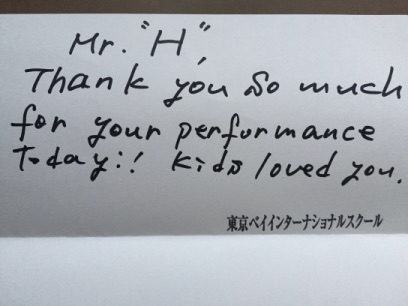 Mr. "H",
Thank you so much
for your performance
today!! Kids loved you.
東京ベイインターナショナルスクール